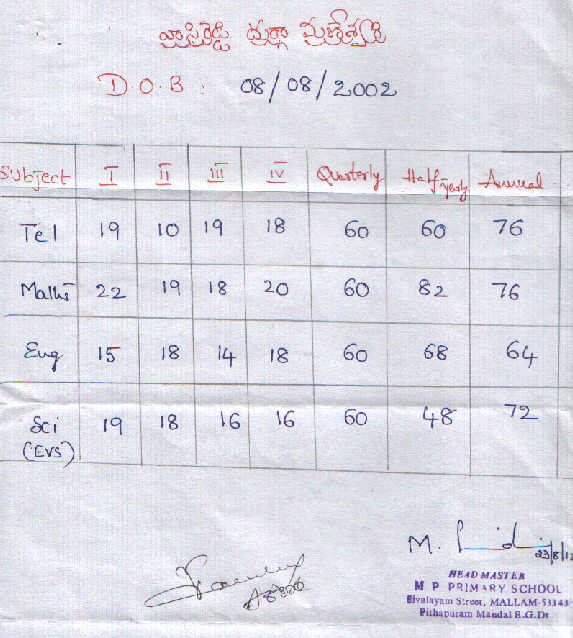 దుర్గా
D.O.B : 08/08/2002
Subject I II III IV Quarterly Half yearly Annual
Tel 19 10 19 18 60 60 76
Maths 22 19 18 20 60 82 76
Eng 15 18 14 18 60 68 64
Sci 19 18 16 16 60 48 72
(EVS)
M.
23/8/12
HEAD MASTER
M P PRIMARY SCHOOL
Sivalayam Street, MALLAM-53143
Pithapuram Mandal E.G.Dt